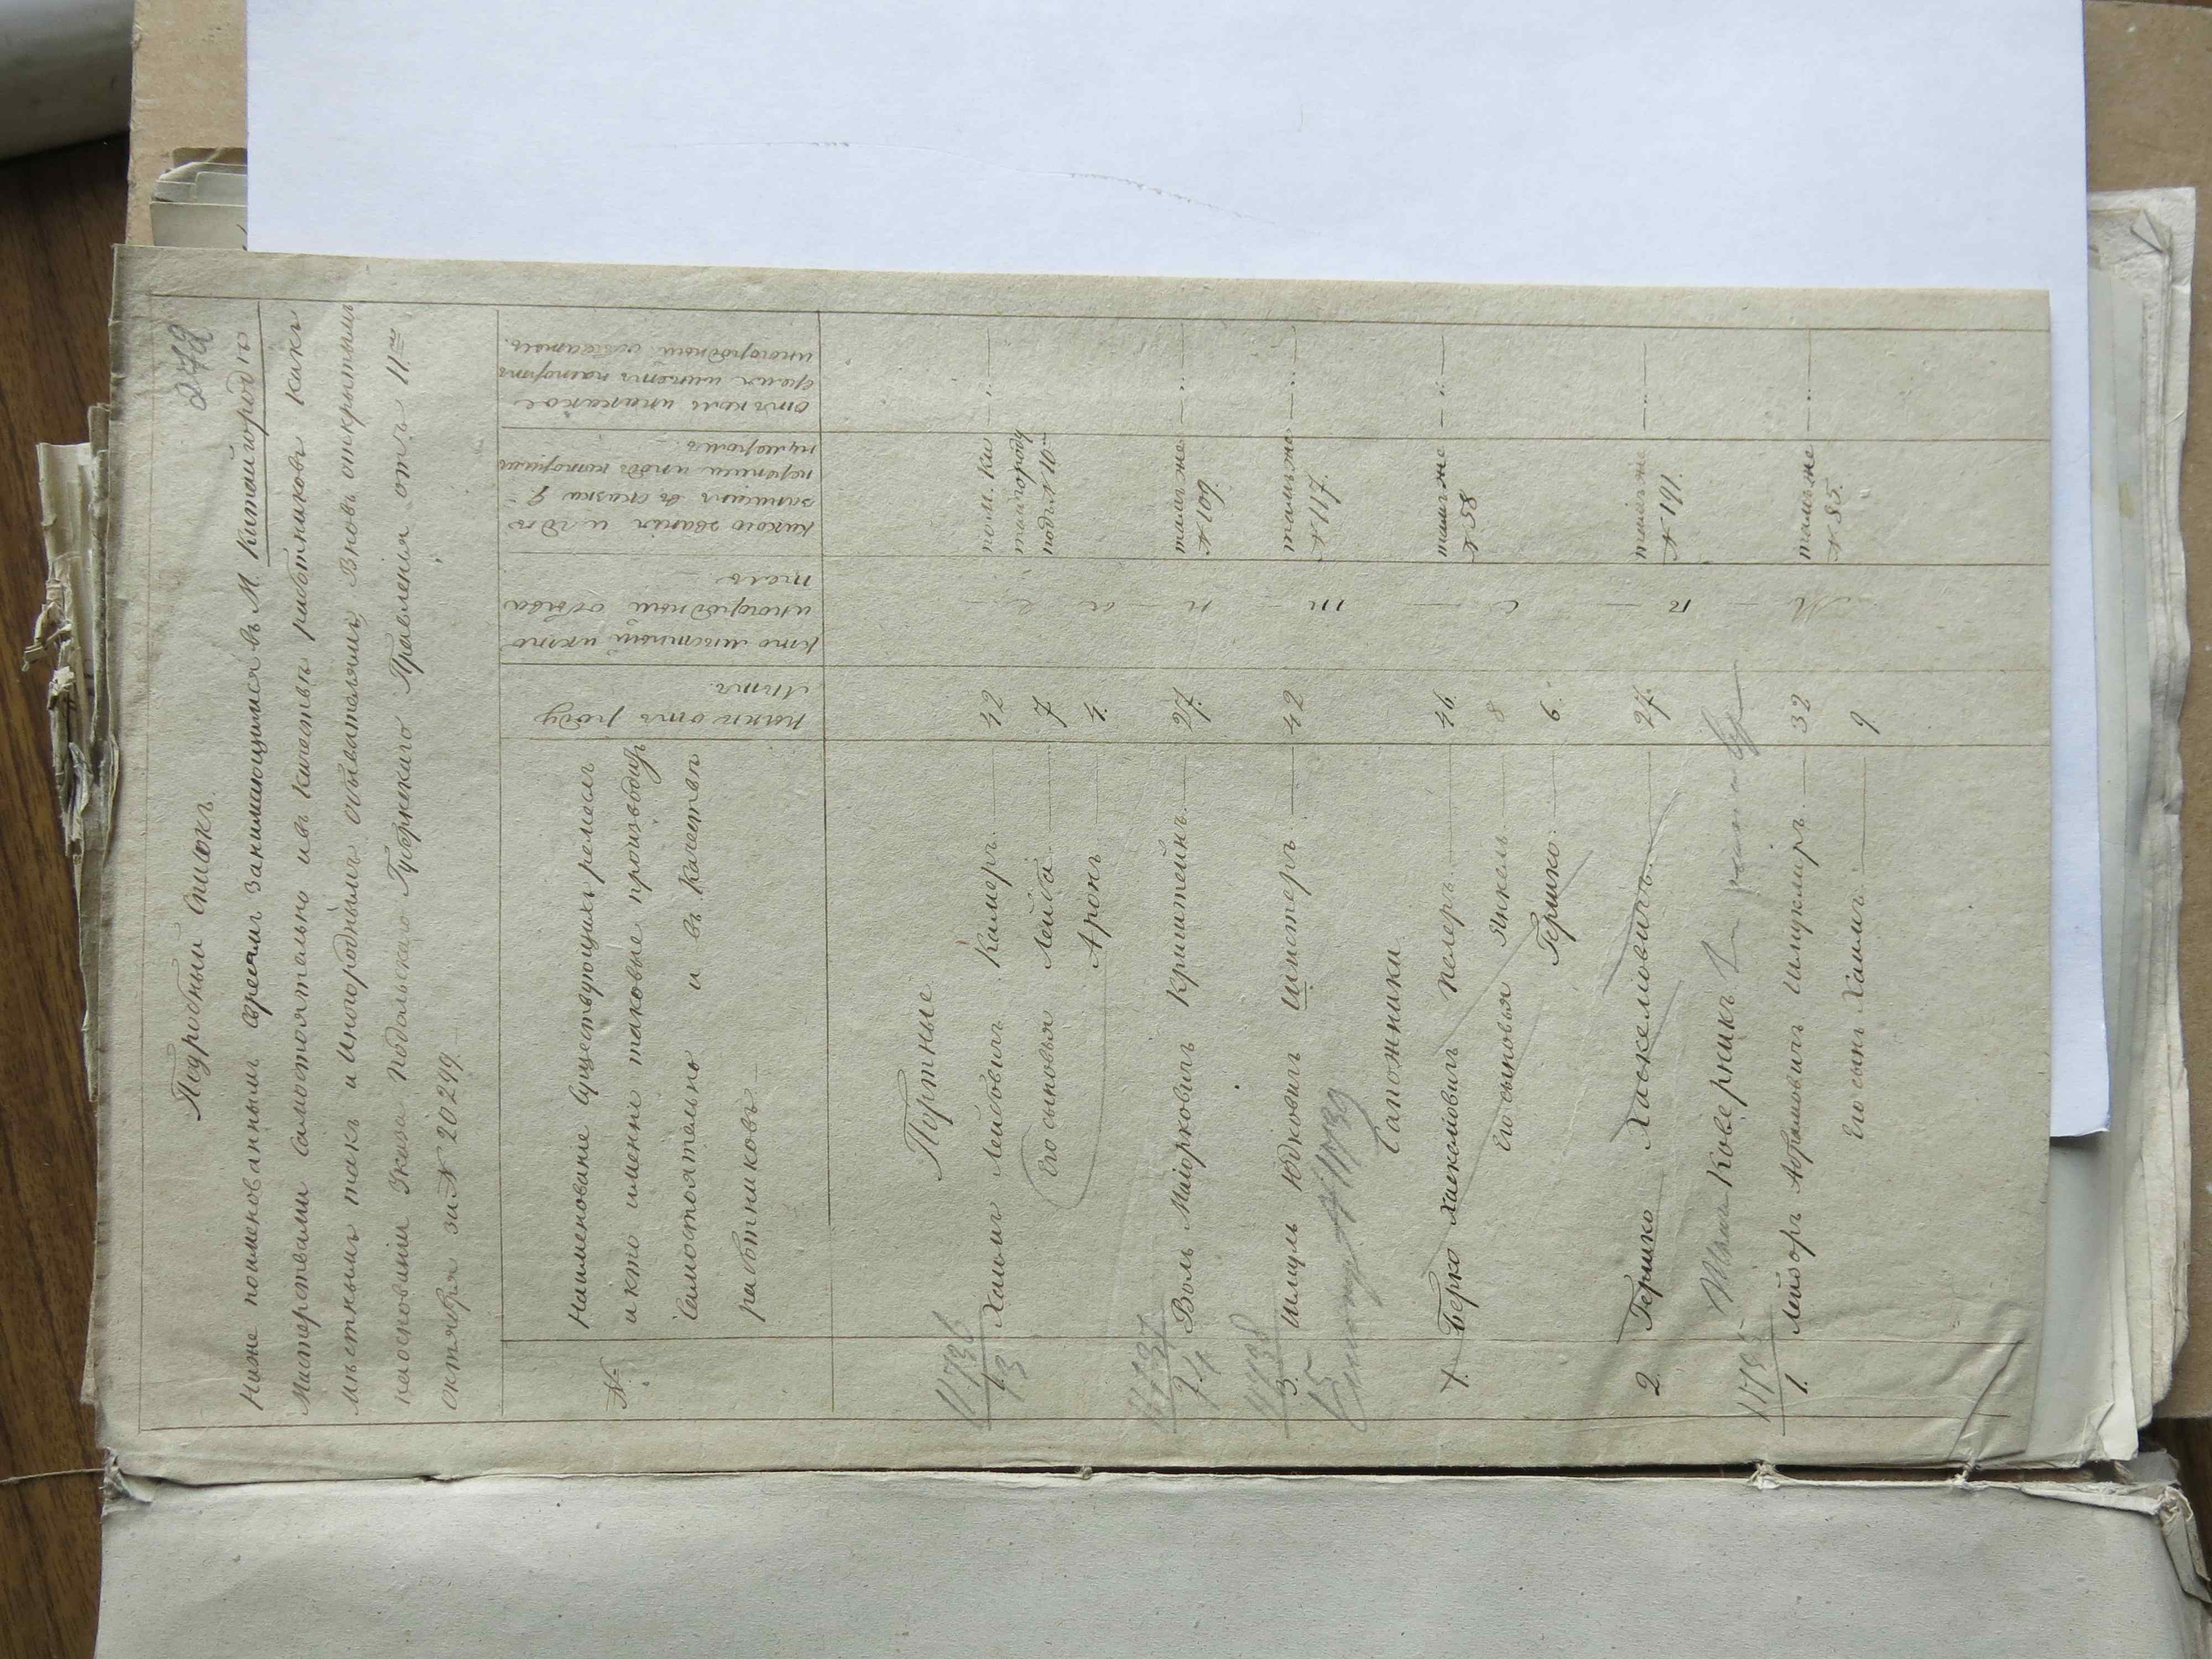 272
Подробный Списокъ.
Ниже поименованнымъ Евреямъ Занимающимся въ М. Китайгородѣ
Мастерствами Самостоятельно и въ Качествѣ работниковъ какъ
мѣстнымъ такъ и Иногороднымъ обывателямъ, Вновь открытымъ
на основаніи Указа Подольскаго Губернскаго Правленія отъ 11го
октября за № 20299
№
Наименованіе Существующихъ ремеслъ
и кто именно таковые производитъ
Самостоятельно и въ Качествѣ
работниковъ
колик отъ роду
Лѣтъ.
кто мѣстный и кто
иногородный обыва
тель
какого званія и гдѣ
записанъ въ сказки 9
переписи и подъ которымъ
нумеромъ
отъ коль и на какое
время имѣетъ паспортъ
иногородный
Портные
11736
1 Хаимъ Лейбовичъ Камеръ 42 по м. Ки
тайгороду
подъ № 10
13
Его сыновья Лейба 7
Аронъ 4.
11737
2 Воль Маіорковичъ Криштейнъ 27. тамъ же
№ 109.
14
11738
3. Шмуль Юдковичъ Шистеръ 42 тамъ же
№ 117.
15
11739
Сапожники
1. Берко Хаскелювичъ Пелеръ 46. тамъ же
№ 58
Его сыновья Янкель 8
Гершко 6.
2. Гершко Хаскелювичъ 27. тамъ же
№ 191.
Коверникъ
1. Лейзоръ Абрамовичъ Шмуклиръ. 32 тамъ же
№ 85.
Его сынъ Хаимъ 9